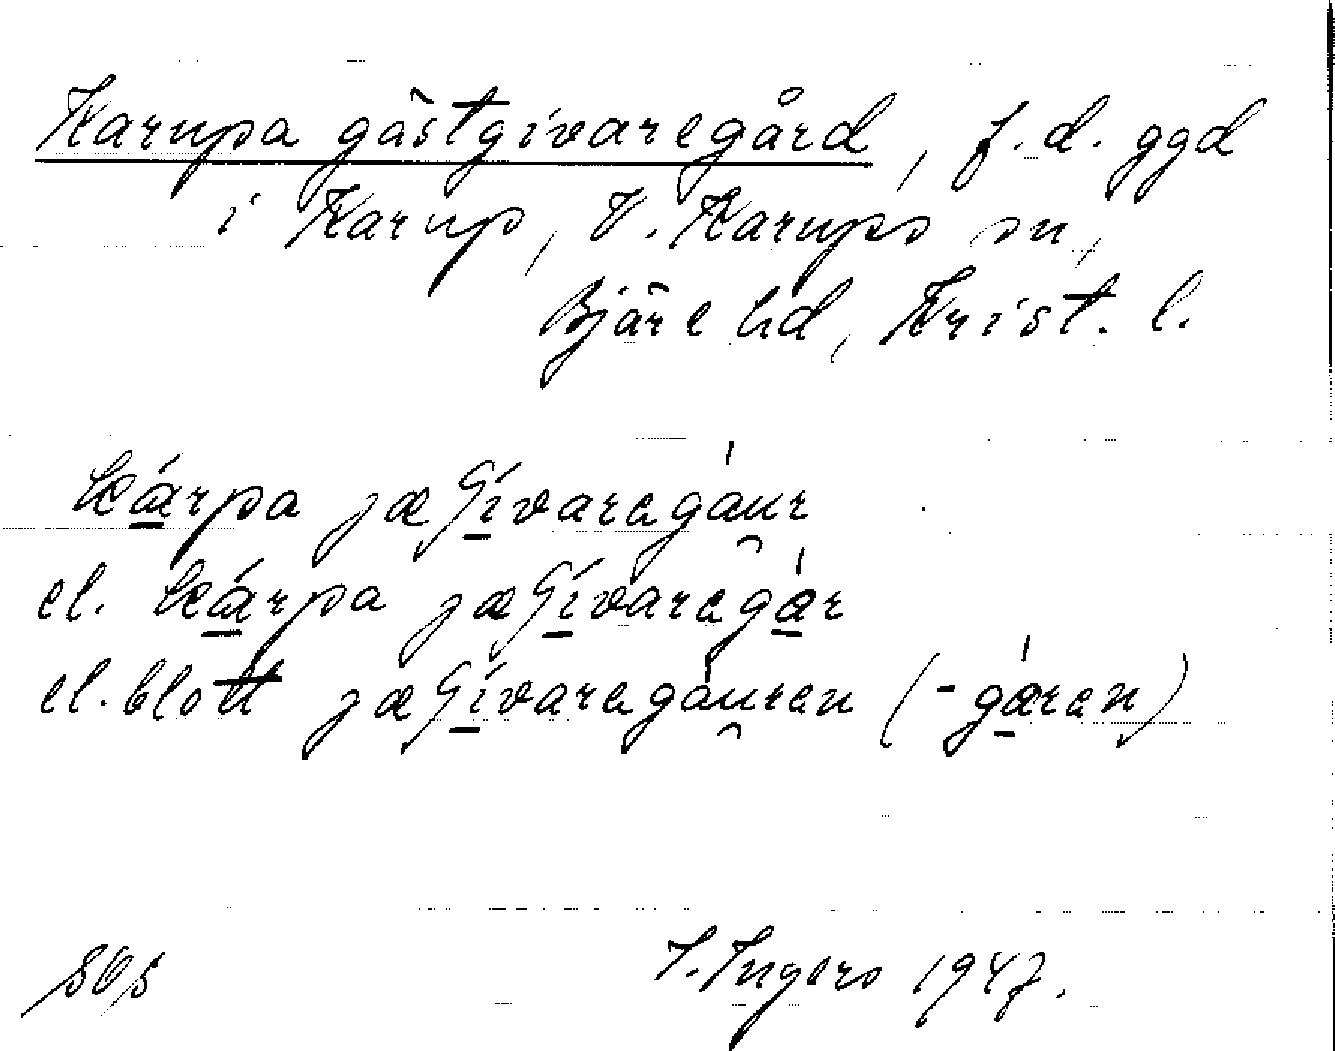 Karupa gästgivaregård, f.d. ggd
i Karup, V. Karups sn,
Bjäre hd, Krist. l.
kárpa jæʃívaragáur
el. kárpa jæʃívaragár
el. blott jæʃívaragáuran (-gáran)
I. Ingers 1947.